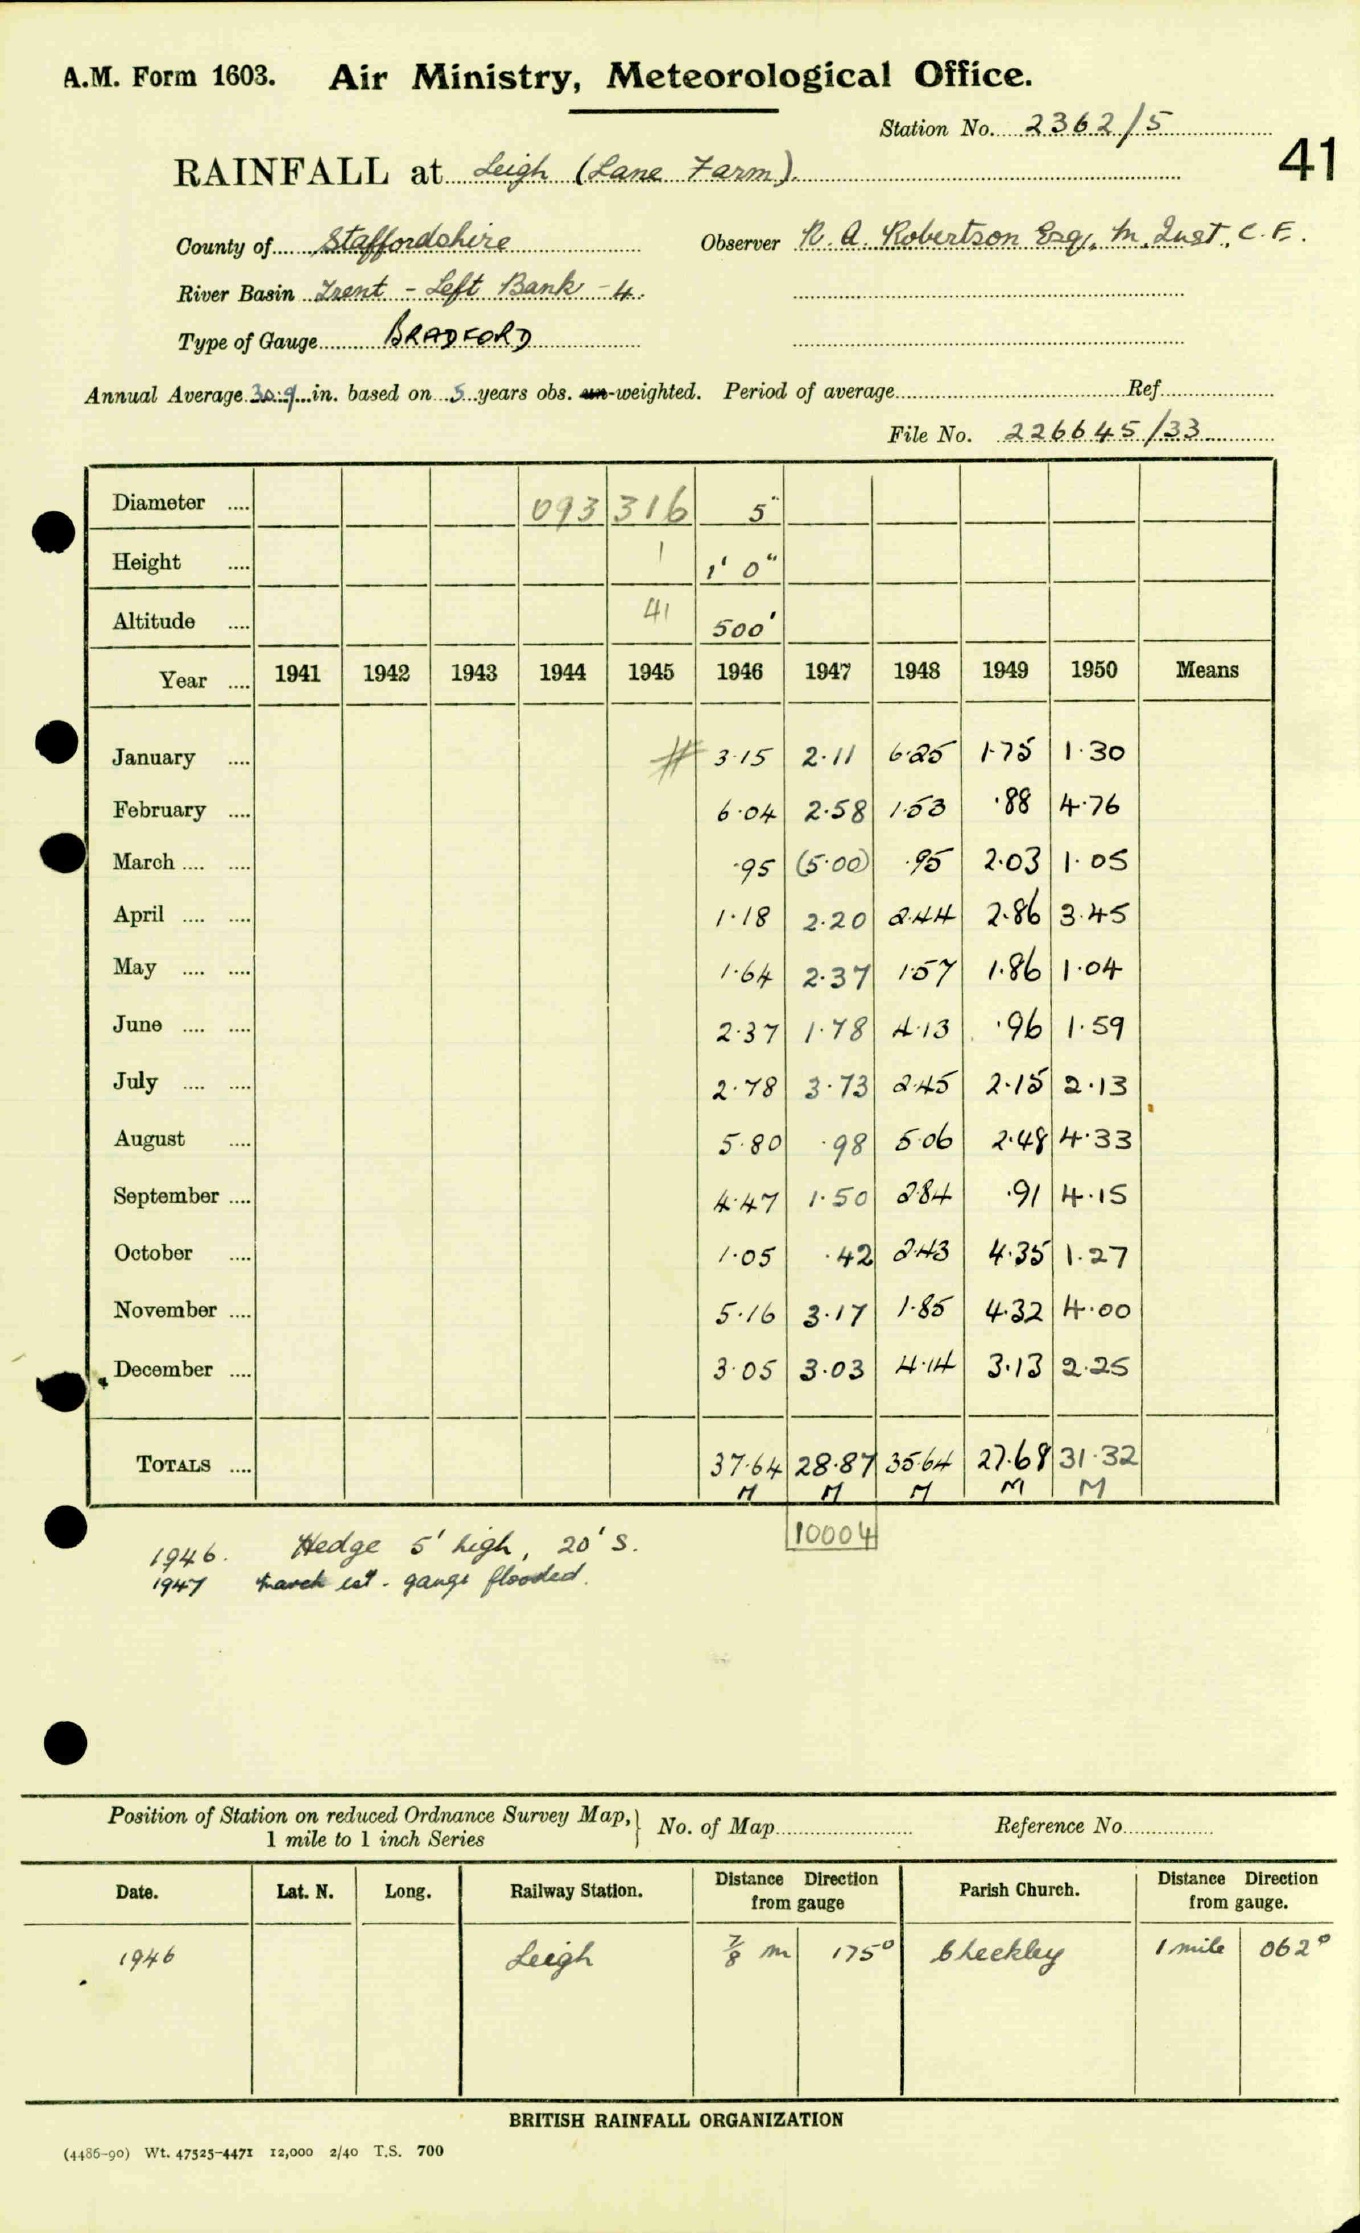 A.M. Form 1603. Air Ministry, Meteorological Office.
Station No. 2362/5
41
RAINFALL at Leigh (Lane Farm)
County of Staffordshire Observer R. A. Robertson Esq., M. Inst. C. E.
River Basin Trent - Left Bank - 4.
Type of Gauge BRADFORD
Annual Average 30.9 in. based on 5 years obs. un-weighted. Period of average Ref
File No. 226645/33
Diameter .... 093 316 5"
Height .... 1 1' 0"
Altitude .... 41 500'
Year .... 1941 1942 1943 1944 1945 1946 1947 1948 1949 1950 Means
January .... # 3.15 2.11 6.25 1.75 1.30
February .... 6.04 2.58 1.53 .88 4.76
March .... .... .95 (5.00) .95 2.03 1.05
April .... .... 1.18 2.20 2.44 2.86 3.45
May .... .... 1.64 2.37 1.57 1.86 1.04
June .... .... 2.37 1.78 4.13 .96 1.59
July .... .... 2.78 3.73 2.45 2.15 2.13
August .... 5.80 .98 5.06 2.48 4.33
September .... 4.47 1.50 2.84 .91 4.15
October .... 1.05 .42 2.43 4.35 1.27
November .... 5.16 3.17 1.85 4.32 4.00
December .... 3.05 3.03 4.14 3.13 2.25
TOTALS .... 37.64 28.87 35.64 27.68 31.32
M M M M M
10004
1946. Hedge 5' high, 20' S.
1947 March est. gauge flooded.
Position of Station on reduced Ordnance Survey Map, } No. of Map Reference No.
1 mile to 1 inch Series
Date. Lat. N. Long. Railway Station. Distance Direction from gauge Parish Church. Distance Direction from gauge.
1946 Leigh 7/8 m 175° Checkley 1 mile 062°
BRITISH RAINFALL ORGANIZATION
(4486-90) Wt. 47525-4471 12,000 2/40 T.S. 700